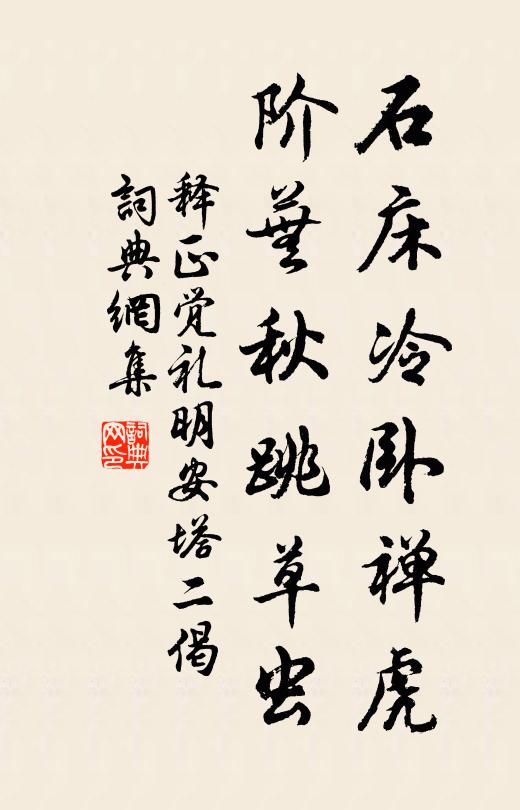 石床冷卧禅虎
阶芜秋跳草虫
释正觉礼明安塔二偈
詞典網集
詞典
网印